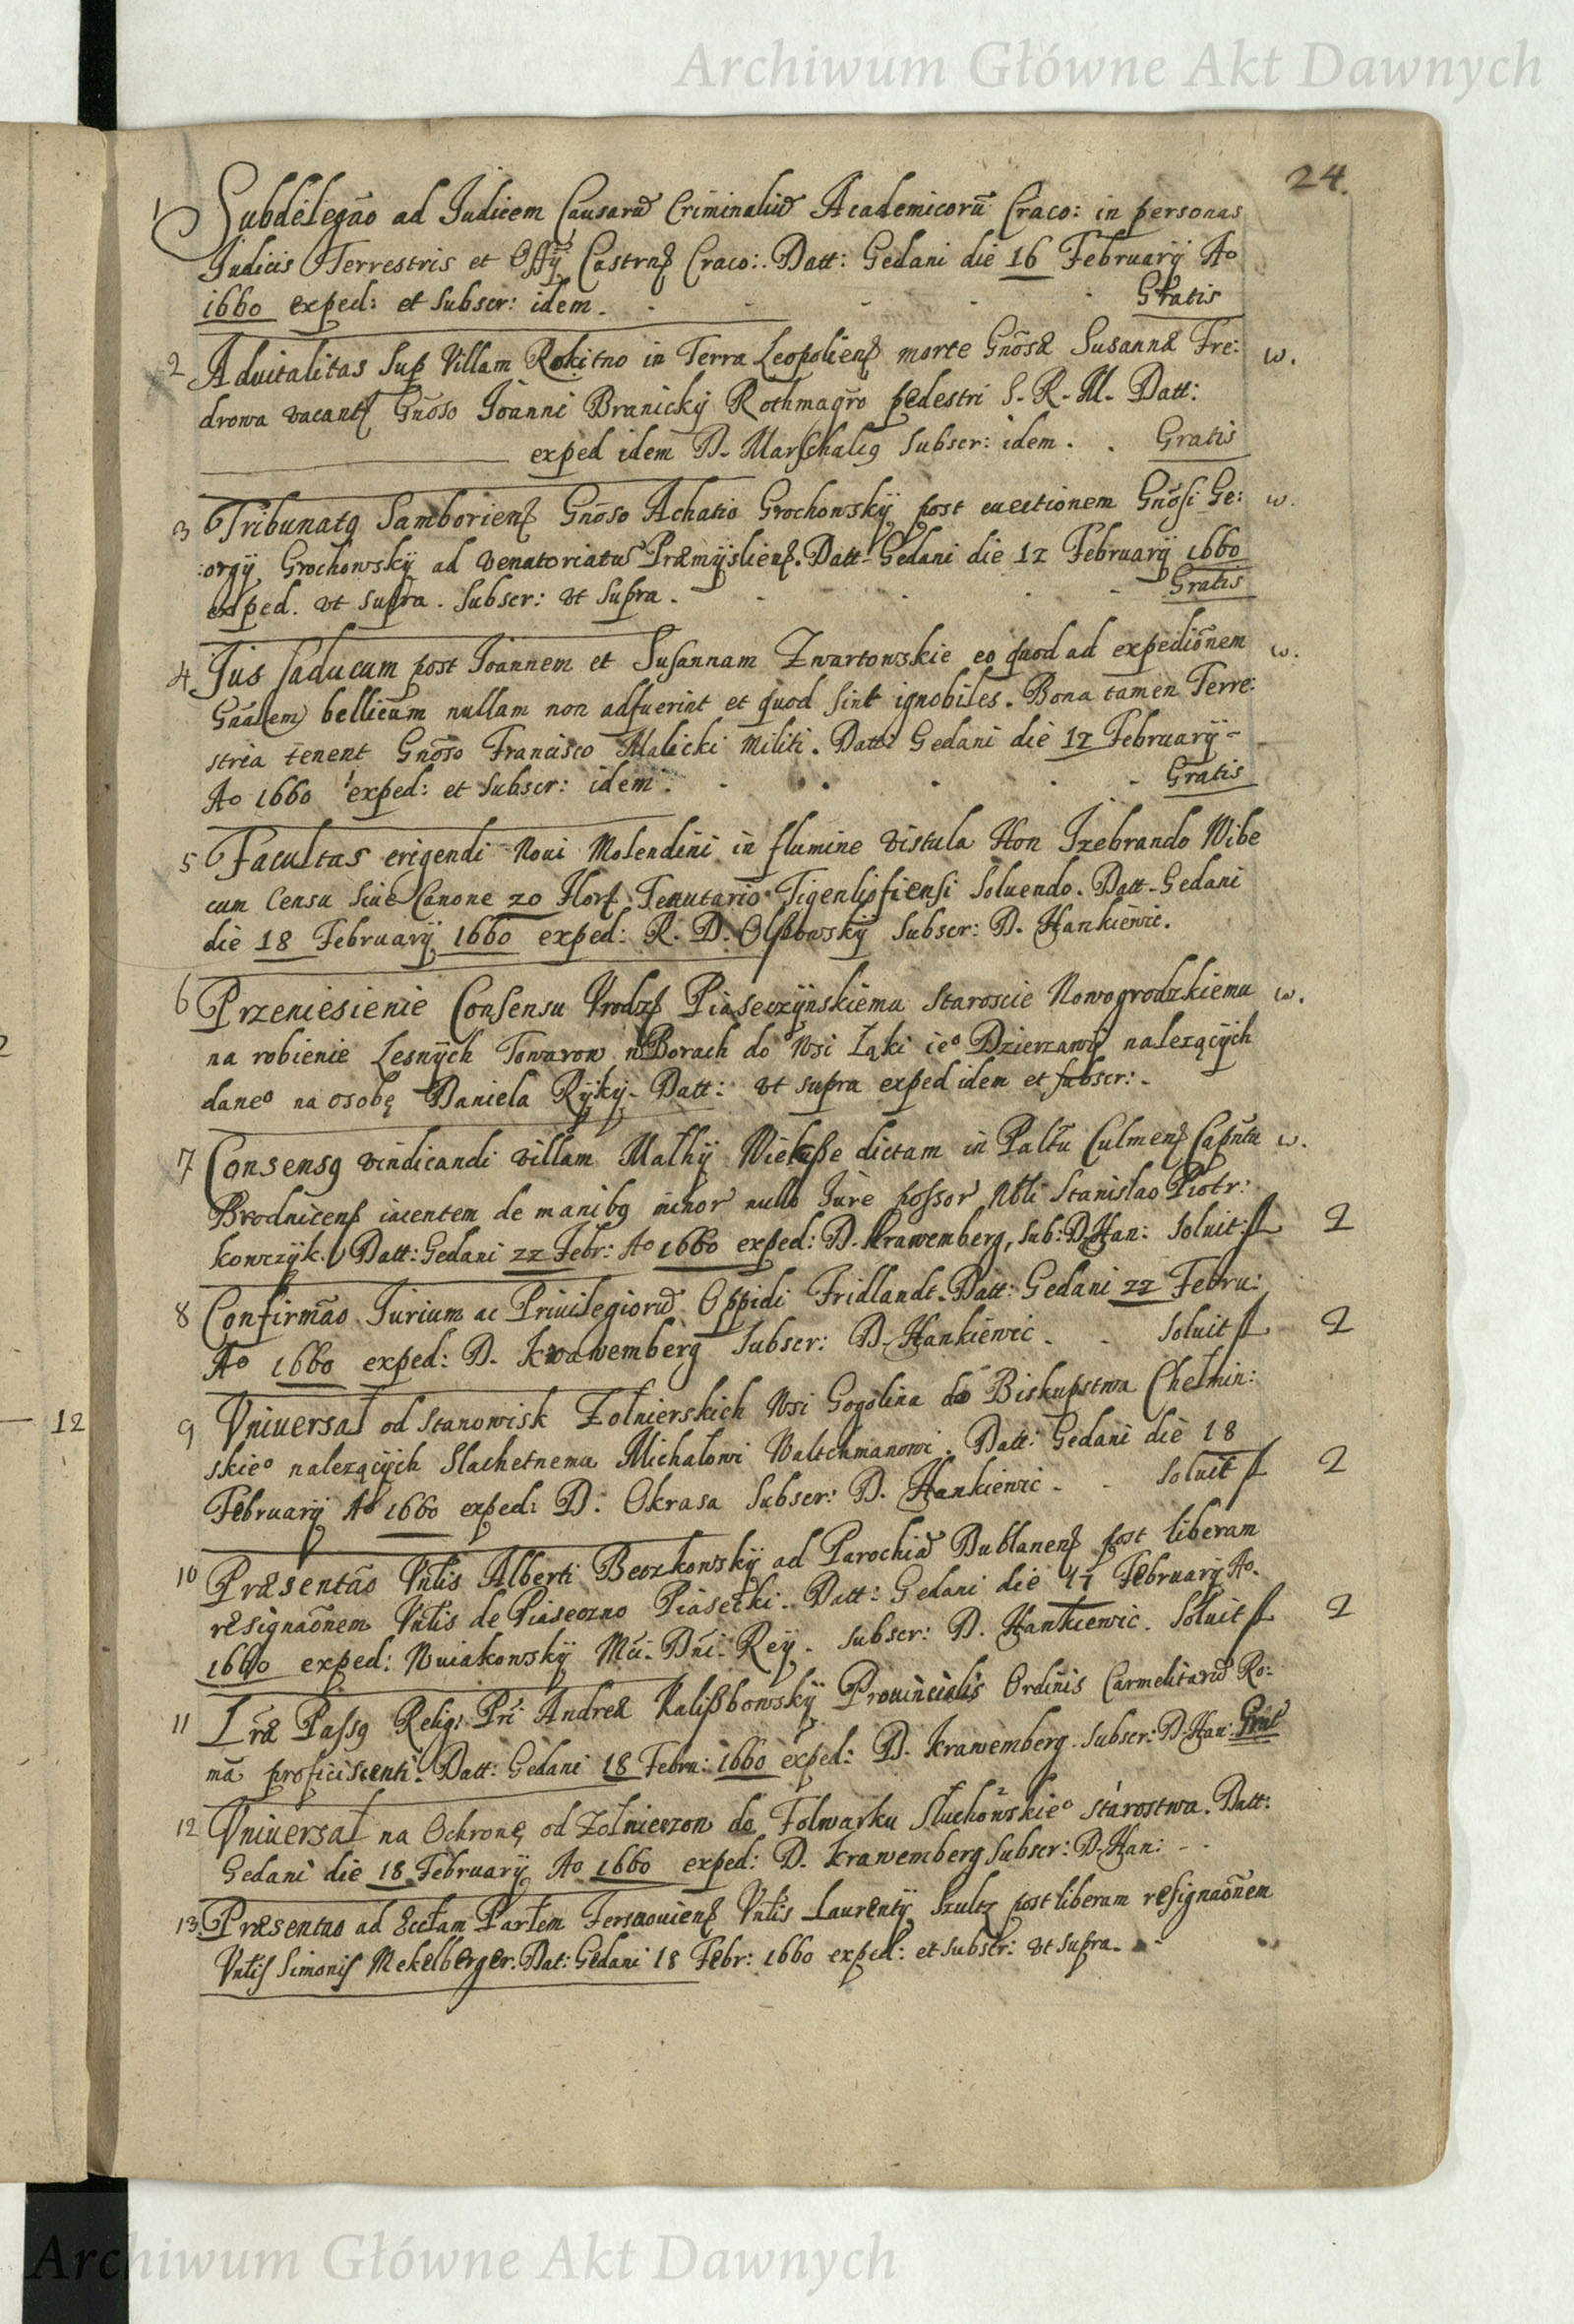 Archiwum Główne Akt Dawnych
24.
1 Subdelegão ad Judicem Causarũ Criminaliũ Academicorũ Craco: in personas
Judicis Terrestris et Offỹ Castrnẞ Craco:. Datt: Gedani die 16 February Ao
1660 exped: et subscr: idem. Gratis
2 Advitalitas sup Villam Rokitno in Terra Leopolienß morte Gnõsæ Susannæ Fre: w.
drowa vacantẞ Gnõso Joanni Branicky Rothmagrõ pedestri S. R. M. Datt:
exped idem D. Marschalcq subscr: idem. Gratis
3 Tribunatq Samborienß Gnõso Achatio Grochowskÿ post euectionem Gnõsi Ge: w.
:orgÿ Grochowskÿ ad venatoriatũ Præmÿslienß. Datt. Gedani die 12 Februarÿ 1660
exped. vt supra. Subscr: vt supra. Gratis
4 Jus Caducum post Joannem et Susannam Zwartowskie eo quod ad expediõnem w.
Gnãlem bellicum nullam non adfuerint et quod sint ignobiles. Bona tamen Terre:
stria tenent Gnõso Francisco Malicki Militi. Datt: Gedani die 12 Februarÿ
Ao 1660 exped: et subscr: idem. Gratis
5 Facultas erigendi Noui Molendini in flumine Vistula Hon Izebrando Wibe
cum Censu siue Canone 20 Flor Tenutario Tigenhoffiensi soluendo. Datt. Gedani
die 18 Februarÿ 1660 exped: R. D. Olßowskÿ subscr: D. Hankiewic.
6 Przeniesienie Consensu Vrodzß Piaseczÿnskiemu Staroscie Nowogrodzkiemu w.
na robienie Lesnÿch Towarow w Borach do Wsi Łąki ieº Dzierzawÿ nalezącÿch
daneº na osobę Daniela Rÿkÿ. Datt: vt supra exped idem et subscr:.
7 Consensq vindicandi villam Małhÿ Wiekße dictam in Paltũ Culmenß Capntu w.
Brodnicenß iacentem de manibq minor nullo Jure possor Nbli Stanislao Piotr:
kowczÿk. Datt: Gedani 22 Febr: Ao 1660 exped: D. Krawemberg, Sub: D. Han: Soluit: fl 2
8 Confirmão Jurium ac Priuilegiorũ Oppidi Fridlandt. Datt: Gedani 22 Febru:
Ao 1660 exped: D. Krawemberg Subscr: D. Hankiewic. Soluit fl 2
9 Vniuersał od Stanowisk Zołnierskich Wsi Gogolina do Biskupstwa Chełmin:
skieº nalezącÿch Slachetnemu Michałowi Waltchmanowi. Datt: Gedani die 18
Februarÿ Ao 1660 exped: D. Okrasa Subscr: D. Hankiewic. Soluit fl 2
10 Præsentão Vnlis Alberti Beczkowskÿ ad Parochiã Dublanenß post liberam
resignaõnem Vnlis de Piaseczno Piasecki. Datt: Gedani die 17 Februarÿ Ao.
1660 exped: Wuiakowskÿ Mũ. Dni. Reÿ. subscr: D. Hankiewic. Soluit fl 2
11 Lræ Passq Religi Pri Andreæ Kalißbowskÿ Prouincialis Ordinis Carmelitarũ Ro:
mã proficiscenti. Datt: Gedani 18 Febru: 1660 exped: D. Krawemberg. Subscr: D. Han: Grat
12 Vniuersał na Ochronę od Zołnierzow do Folwarku Słuchowskieº Starostwa. Datt:
Gedani die 18 Februarÿ Ao 1660 exped: D. Krawemberg Subscr: D. Han:
13. Præsentao ad Eccłam Parłem Vnlis Laurentÿ Szultz post liberam resignaõnem
Vnlis Simonis Mekelberger. Dat: Gedani 18 Febr: 1660 exped: et subscr: vt supra.
12
Archiwum Główne Akt Dawnych